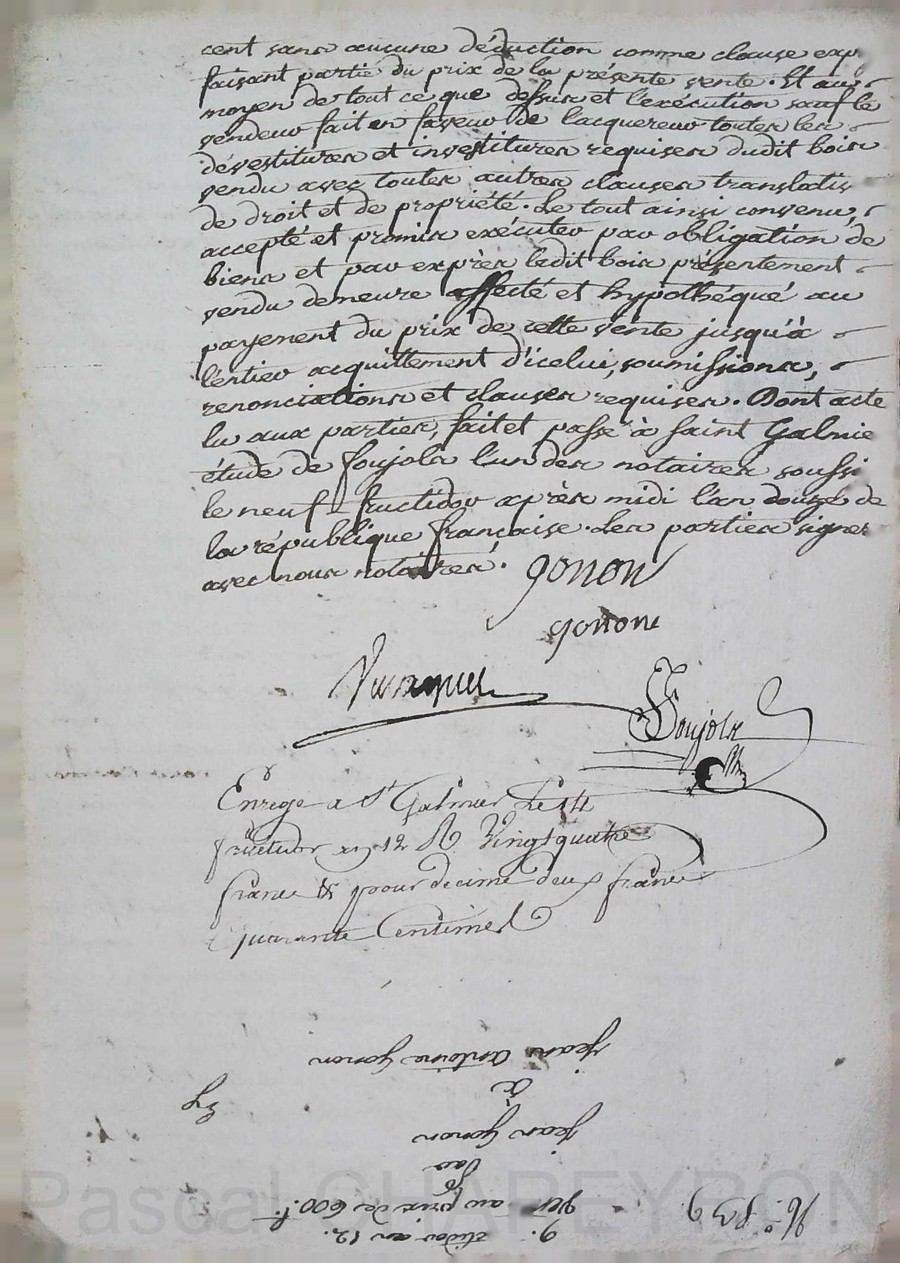 cent sans aucune déduction comme clause exp
faisant partie du prix de la présente vente. Et au
moyen de tout ce que dessus et l'exécution sauf le
vendeur fait en faveur de l'acquereur toutes les
dévestitures et investitures requises dudit bois
vendu avec toutes autres clauses translatis
de droit et de propriété. Le tout ainsi convenu,
accepté et promis exécuter par obligation de
biens et par exprès ledit bois présentement
vendu demeure affecté et hypothéqué au
payement du prix de cette vente jusqu'à
l'entier acquittement d'icelui, soumissions,
renonciations et clauses requises. Dont acte
lu aux parties, fait et passé à saint Galmie
étude de foujols l'un des notaires soussi
le neuf fructidor après midi l'an douze de
la république française. Les parties signer
avec nous notaires.
gonon
gonon
foujols
Enrege a St Galmier Le 14
fructidor an 12 R. Vingtquatre
francs & pour decime deux francs
Quarante Centimes
N.° 839
9. tidor an 12.
au prix de 600 f.
Par
jean gonon
à
jean antoine gonon